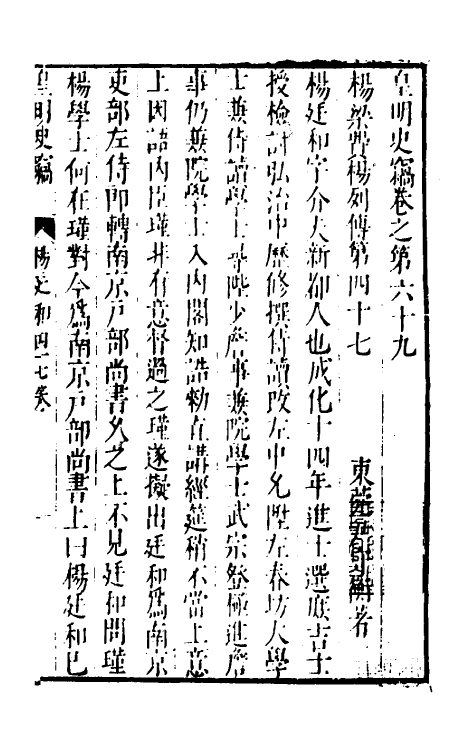 皇明史竊卷之第六十九
楊梁費楊列傳第四十七
東莞尹守衡著
楊廷和字介夫新都人也成化十四年進士選庶吉士
授檢討弘治中歷修撰侍讀改左中允陞左春坊大學
士兼侍讀學士尋陞少詹事兼院學士武宗登極進詹
事仍兼院學士入內閣知誥勑直講經筵稍不當上意
上因語內臣瑾非有意督過之瑾遂擬出廷和為南京
吏部左侍郎轉南京戶部尚書久之上不見廷和問瑾
楊學士何在瑾對今為南京戶部尚書上曰楊廷和已
皇明史竊 楊廷和四十七卷 一